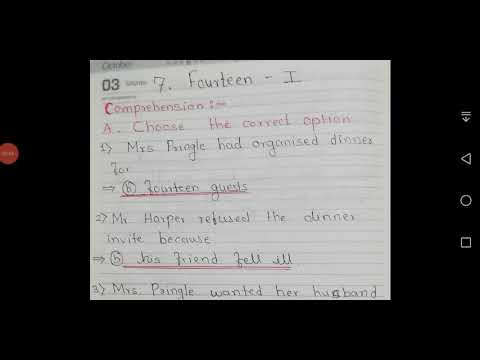 October
03
7. Fourteen - I
Comprehension :-
A. Choose the correct option
1) Mrs Pringle had organised dinner
for
⇒ (b) fourteen guests
2) Mr Harper refused the dinner
invite because
⇒ (b) his friend fell ill
3) Mrs. Pringle wanted her husband